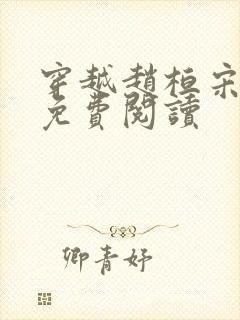 穿越趙桓宋
免費閱讀
卿青妤